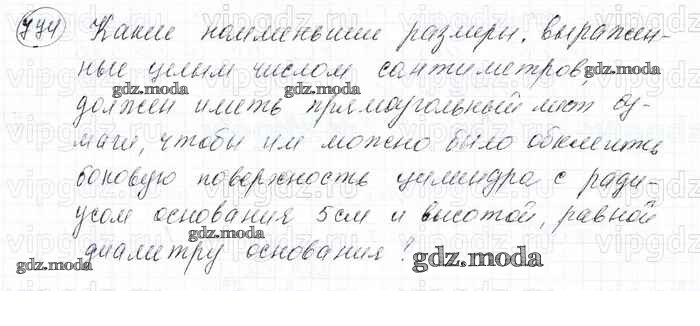 744 Какие наименьшие размеры, выражен-
ные целым числом сантиметров,
должен иметь прямоугольный лист бу-
маги, чтобы им можно было обклеить
боковую поверхность цилиндра с ради-
усом основания 5 см и высотой, равной
диаметру основания?
gdz.moda
gdz.moda
gdz.moda
gdz.moda
gdz.moda
gdz.moda